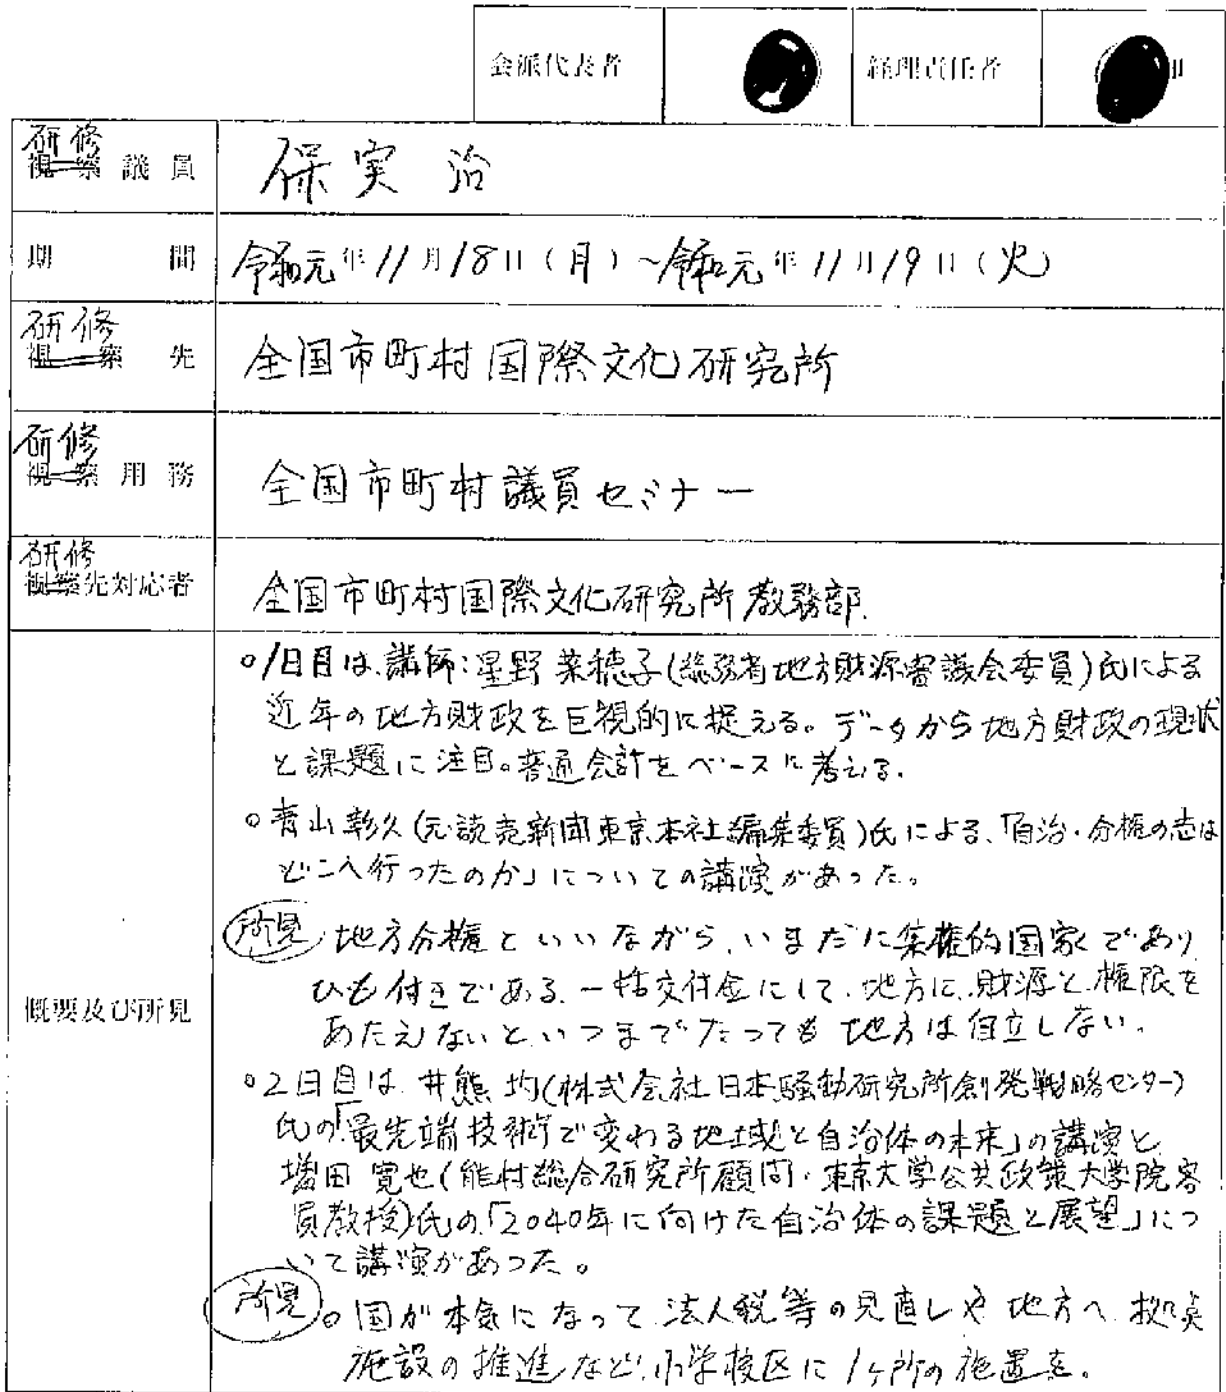 会派代表者 経理責任者 印
研修
視察議員 保実 治
期間 令和元年11月18日(月)～令和元年11月19日(火)
研修
視察先 全国市町村国際文化研究所
研修
視察用務 全国市町村議員セミナー
研修
視察先対応者 全国市町村国際文化研究所教務部.
概要及び所見
○1日目は、講師:星野菜穂子(総務省地方財源審議会委員)氏による
近年の地方財政を巨視的に捉える。データから地方財政の現状
と課題に注目。普通会計をベースに考える.
○青山彰久(元読売新聞東京本社編集委員)氏による、「自治・分権の志は
どこへ行ったのか」についての講演があった。
所見 地方分権といいながら、いまだに集権的国家であり
ひも付きである、一括交付金にして、地方に、財源と権限を
あたえないといつまでたっても地方は自立しない.
○2日目は、井熊 均(株式会社日本騒動研究所創発戦略センター)
氏の「最先端技術で変わる地域と自治体の未来」の講演と
増田 寛也(能村総合研究所顧問・東京大学公共政策大学院客
員教授)氏の、「2040年に向けた自治体の課題と展望」につ
いて講演があった。
所見 ○国が本気になって、法人税等の見直しや地方へ拠点
施設の推進など、小学校区に1ヶ所の施置を.